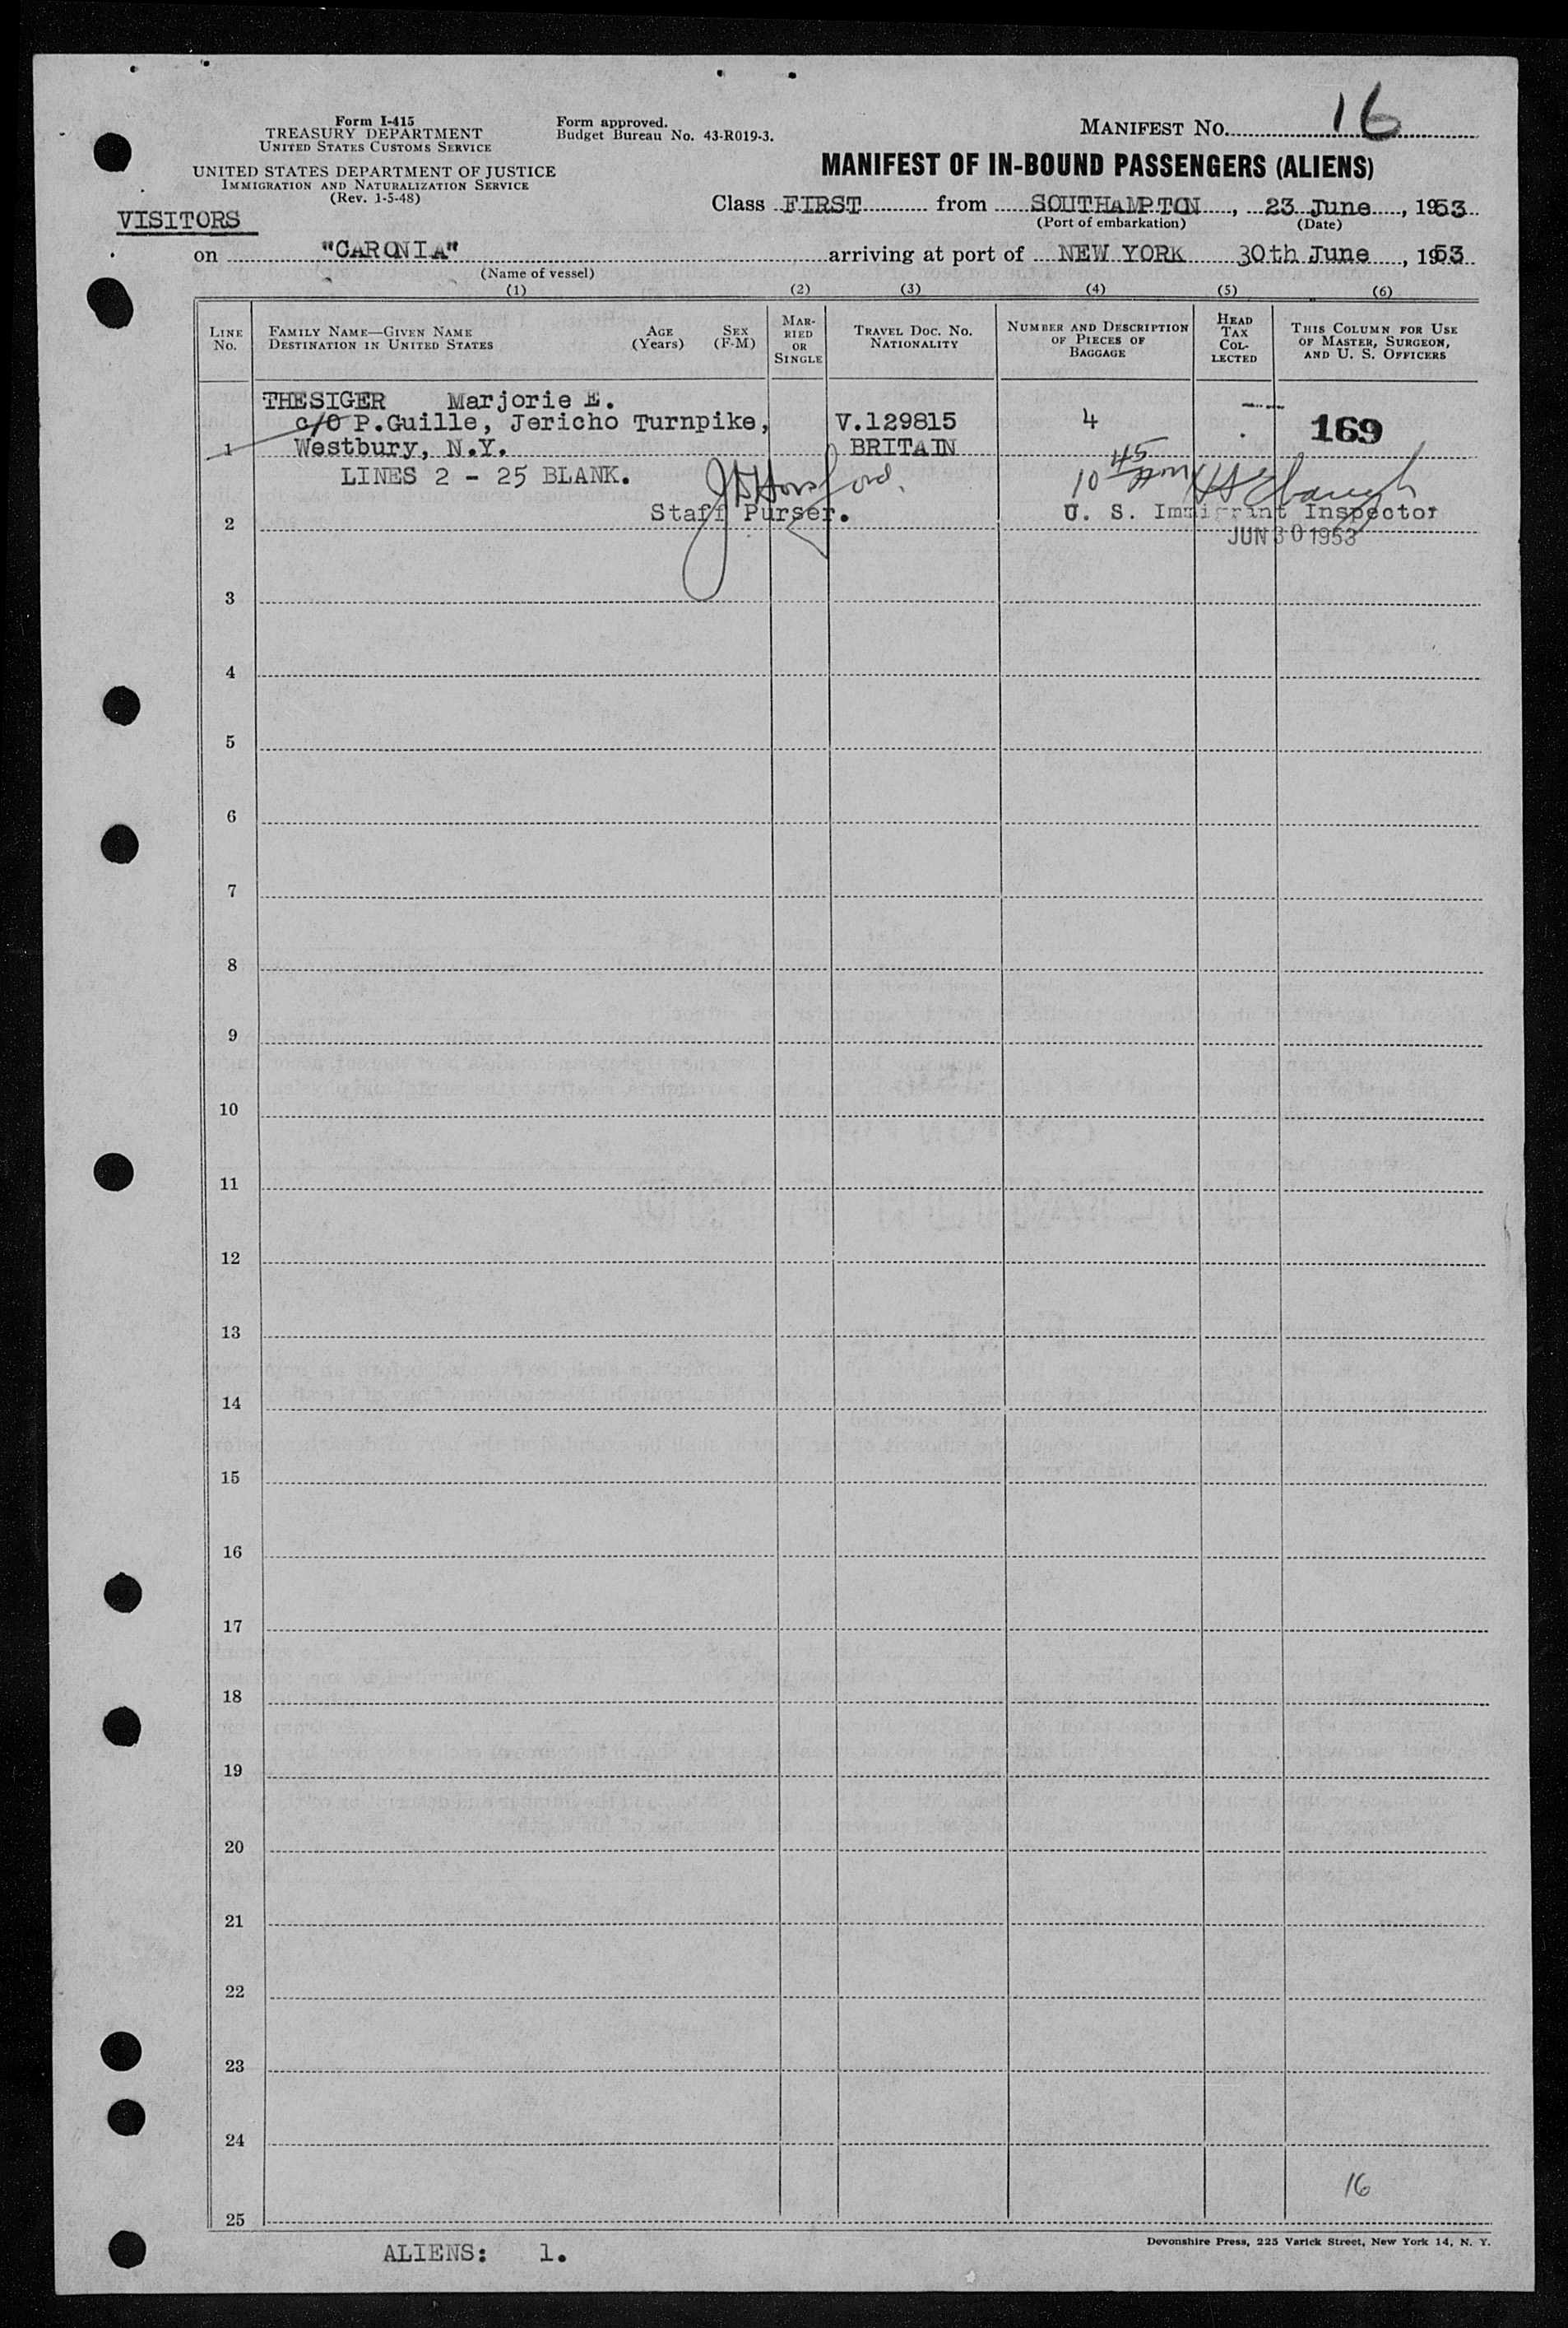 Form I-415
TREASURY DEPARTMENT
UNITED STATES CUSTOMS SERVICE
UNITED STATES DEPARTMENT OF JUSTICE
IMMIGRATION AND NATURALIZATION SERVICE
(Rev. 1-5-48)
Form approved.
Budget Bureau No. 43-R019-3.
MANIFEST NO. 16
MANIFEST OF IN-BOUND PASSENGERS (ALIENS)
Class FIRST from SOUTHAMPTON, 23 June, 1953
(Port of embarkation) (Date)
VISITORS
on "CARONIA" arriving at port of NEW YORK 30th June, 1953
(Name of vessel)
(1) (2) (3) (4) (5) (6)
LINE NO.
FAMILY NAME—GIVEN NAME
DESTINATION IN UNITED STATES
AGE (Years)
SEX (F-M)
MARRIED OR SINGLE
TRAVEL DOC. NO. NATIONALITY
NUMBER AND DESCRIPTION OF PIECES OF BAGGAGE
HEAD TAX COLLECTED
THIS COLUMN FOR USE OF MASTER, SURGEON, AND U. S. OFFICERS
THESIGER Marjorie E.
c/o P.Guille, Jericho Turnpike, V.129815 4 169
1 Westbury, N.Y. BRITAIN
LINES 2 - 25 BLANK.
10 45
Staff Purser. U. S. Immigrant Inspector
2
JUN 30 1953
3
4
5
6
7
8
9
10
11
12
13
14
15
16
17
18
19
20
21
22
23
24
16
25
ALIENS: 1.
Devonshire Press, 225 Varick Street, New York 14, N. Y.